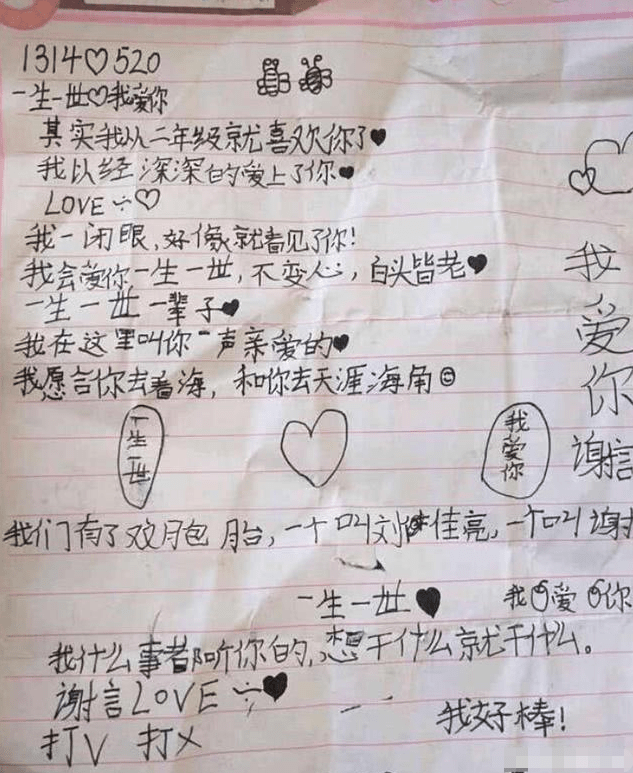 1314♡520
一生一世♡我爱你
其实我从二年级就喜欢你了♥
我以经深深的爱上了你♥
LOVE ♡
我一闭眼,好像就看见了你!
我会爱你一生一世,不变心,白头皆老♥
一生一世一辈子♥
我在这里叫你一声亲爱的♥
我愿言你去看海,和你去天涯海角☺
一生一世
我爱你
我爱你谢言
我们有了双胞胎,一个叫刘佳亮,一个叫谢
一生一世♥
我爱你
我什么事都听你的,想干什么就干什么。
谢言LOVE ♥
我好棒!
打V 打X